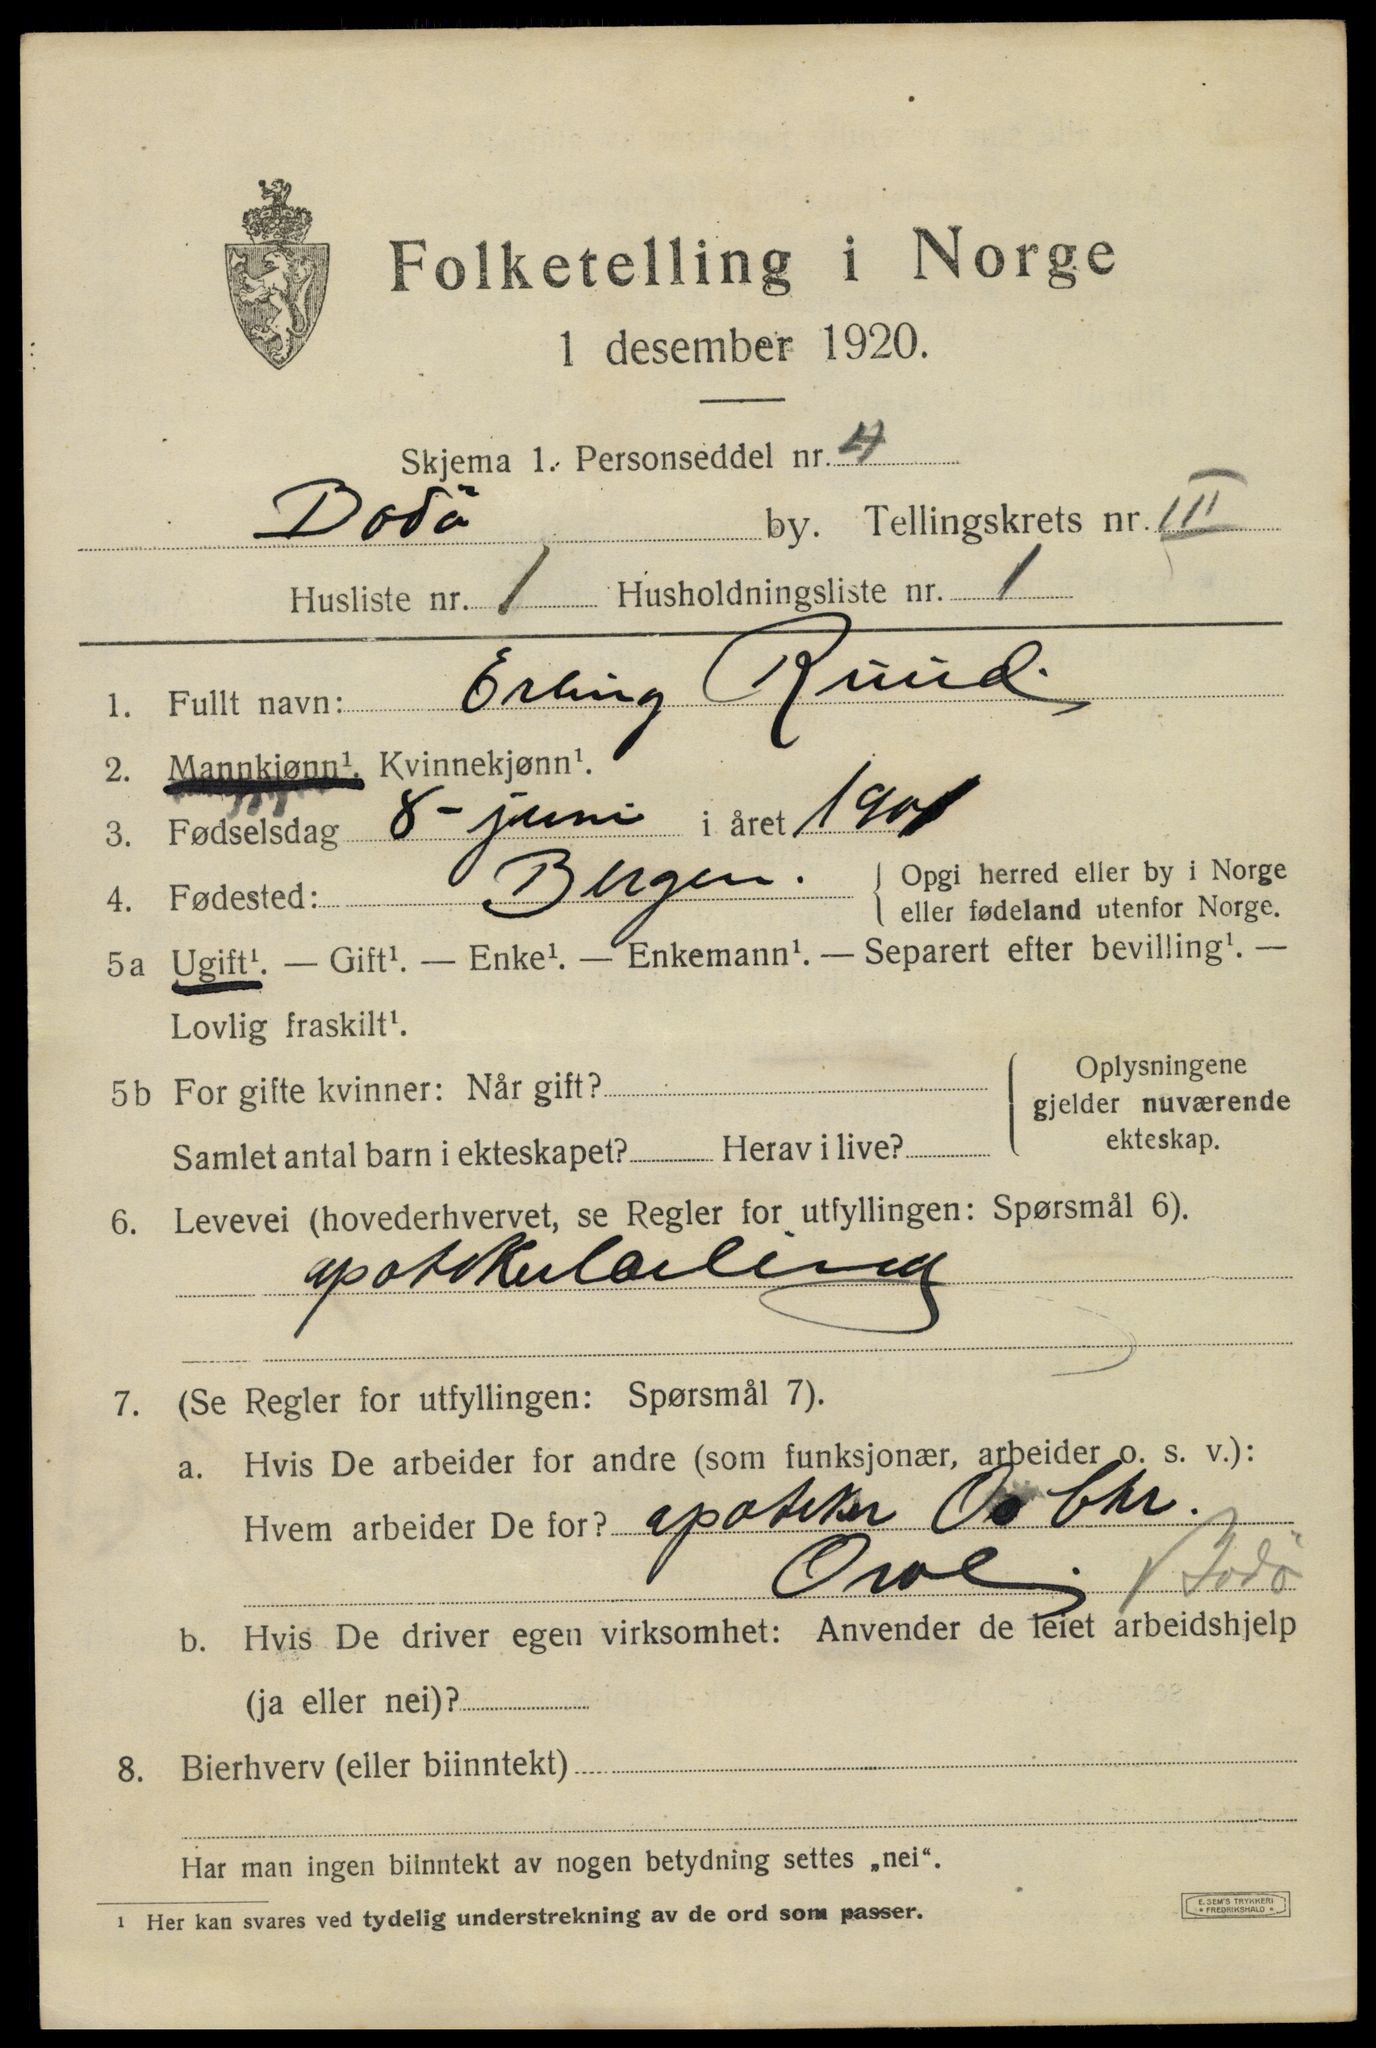 Folketelling i Norge
1 desember 1920.
Skjema 1. Personseddel nr. 4
Bodö by. Tellingskrets nr. III
Husliste nr. 1 Husholdningsliste nr. 1
1. Fullt navn: Erling Ruud.
2. Mannkjønn¹. Kvinnekjønn¹.
3. Fødselsdag 8 - juni i året 1901
4. Fødested: Bergen.
Opgi herred eller by i Norge
eller fødeland utenfor Norge.
5a Ugift¹. — Gift¹. — Enke¹. — Enkemann¹. — Separert efter bevilling¹. —
Lovlig fraskilt¹.
5b For gifte kvinner: Når gift?
Samlet antal barn i ekteskapet? Herav i live?
Oplysningene
gjelder nuværende
ekteskap.
6. Levevei (hovederhvervet, se Regler for utfyllingen: Spørsmål 6).
apotekerlærling
7. (Se Regler for utfyllingen: Spørsmål 7).
a. Hvis De arbeider for andre (som funksjonær, arbeider o. s. v.):
Hvem arbeider De for? apoteker O. Chr.
Orve. Bodö
b. Hvis De driver egen virksomhet: Anvender de leiet arbeidshjelp
(ja eller nei)?
8. Bierhverv (eller biinntekt)
Har man ingen biinntekt av nogen betydning settes „nei“.
¹ Her kan svares ved tydelig understrekning av de ord som passer.
E. SEM'S TRYKKERI
* FREDRIKSHALD *